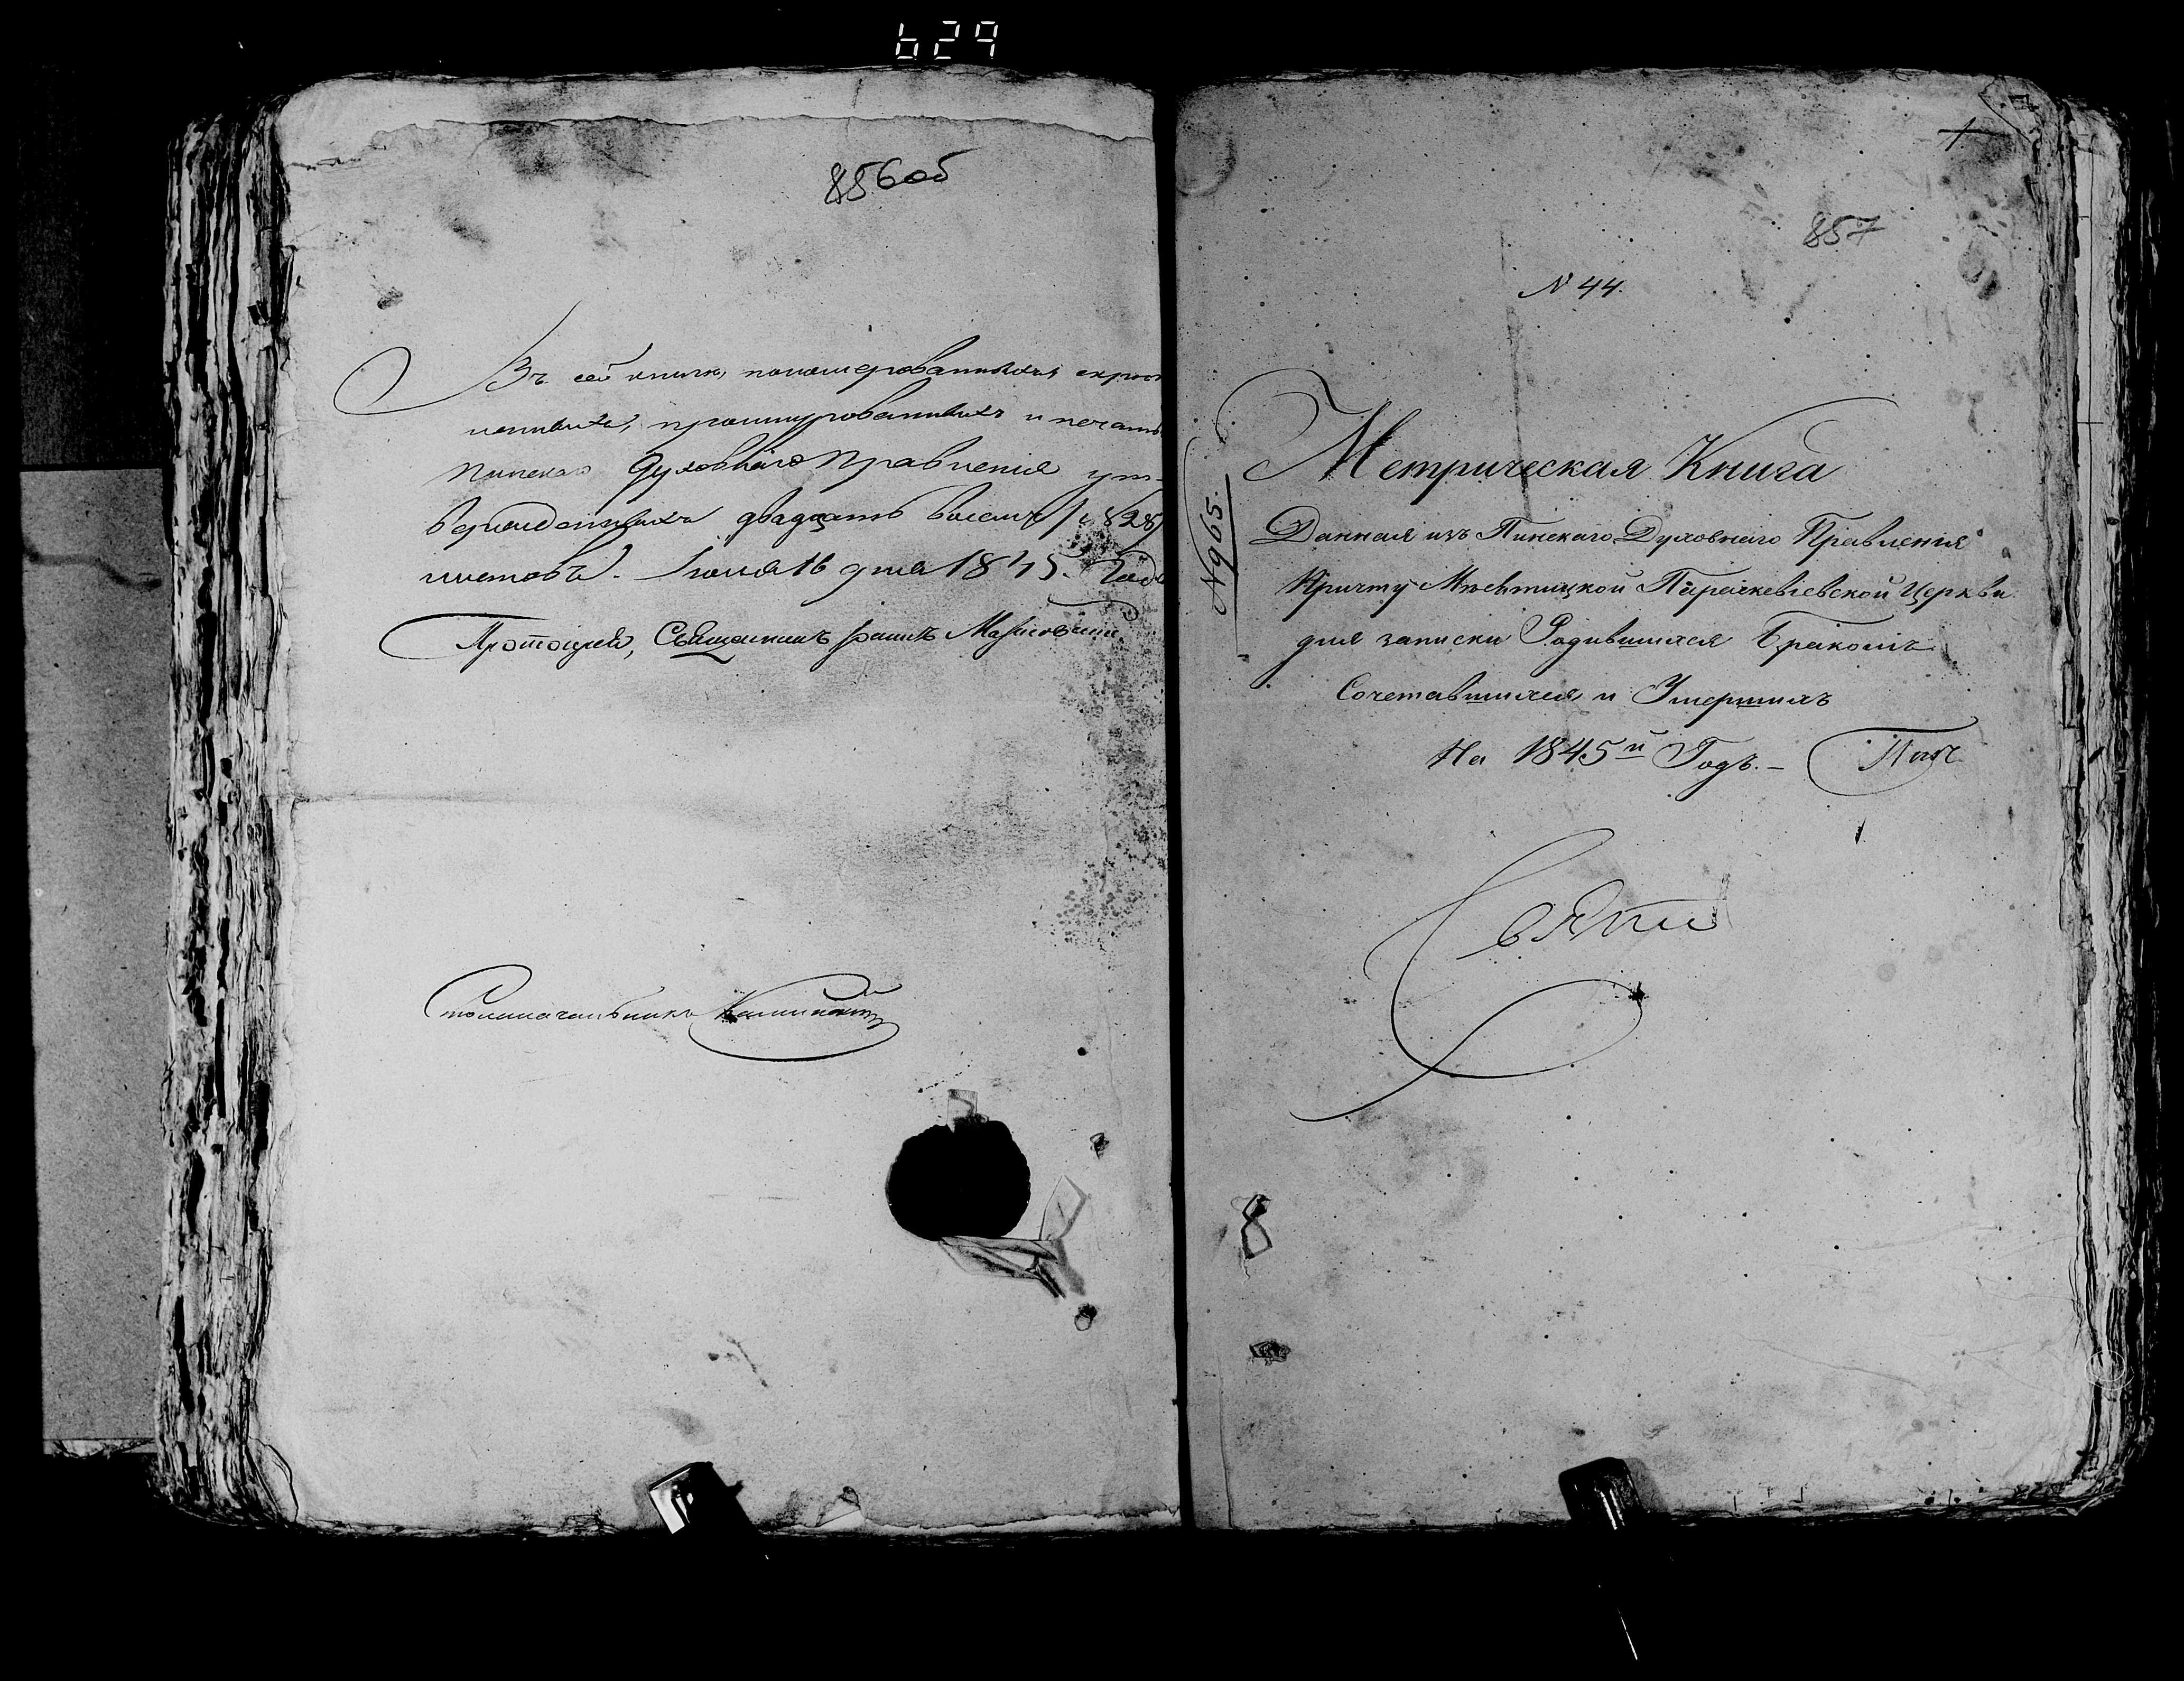 629
856об
Въ сей книге, пономерованныхъ, скреп
ленныхъ, прошнурованныхъ и печатью
Пинскаго Духовнаго Правления ут-
вержденныхъ двадцать восемь /: 28:/
листовъ. 16 дня 1845. Года
Протоиерей, Священникъ
Столоначальникъ
857
N 44.
N965.
Метрическая Книга
Данная изъ Пинскаго Духовнаго Правления
Причту Параскевіевской Церкви
для записки Родившихся Бракомъ
Сочетавшихся и Умершихъ
На 1845й Годъ. —
8